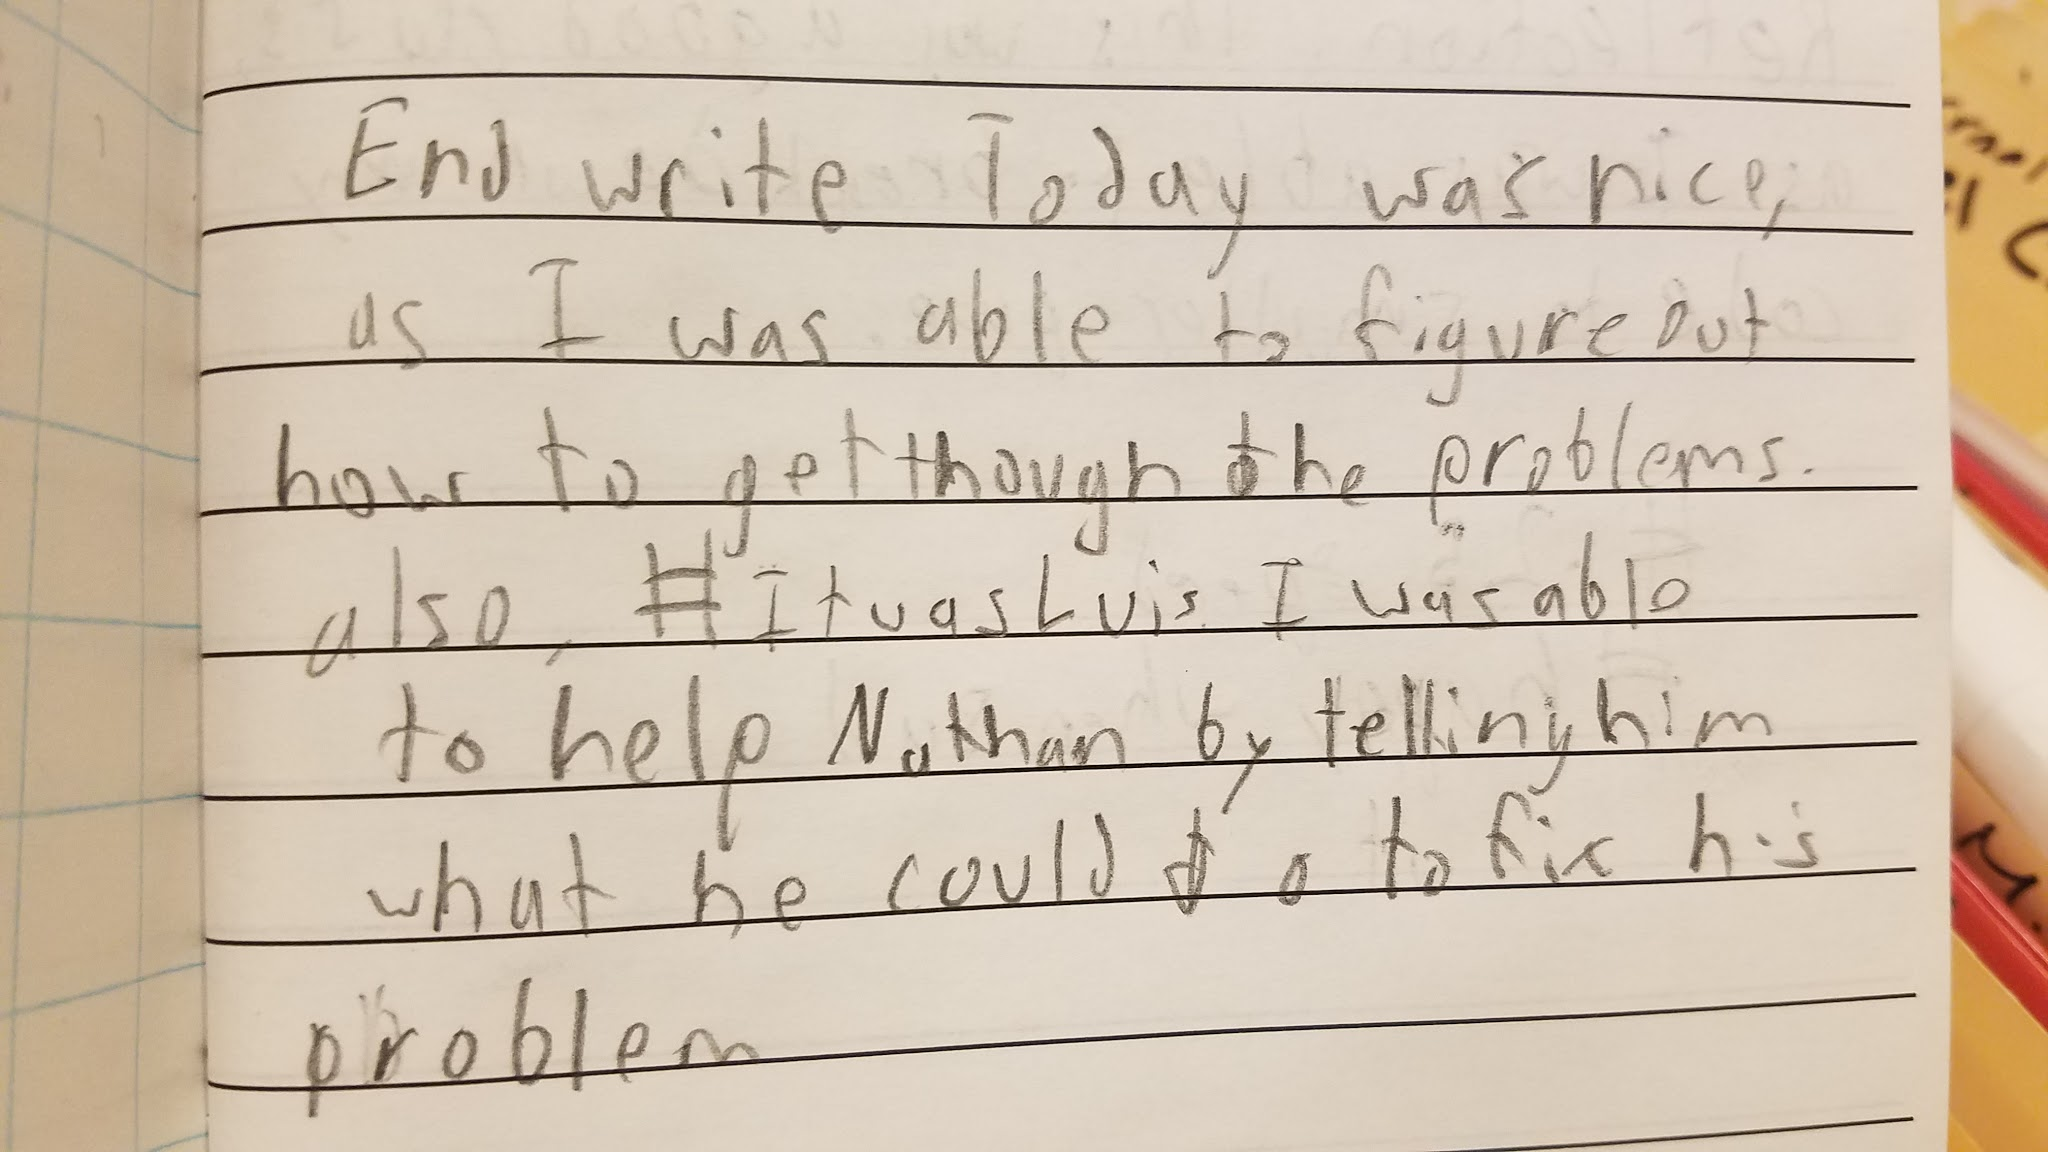 End write Today was nice,
as I was able to figure out
how to get though the problems.
also, #ItwasLuis. I was able
to help Nathan by telling him
what he could do to fix his
problem